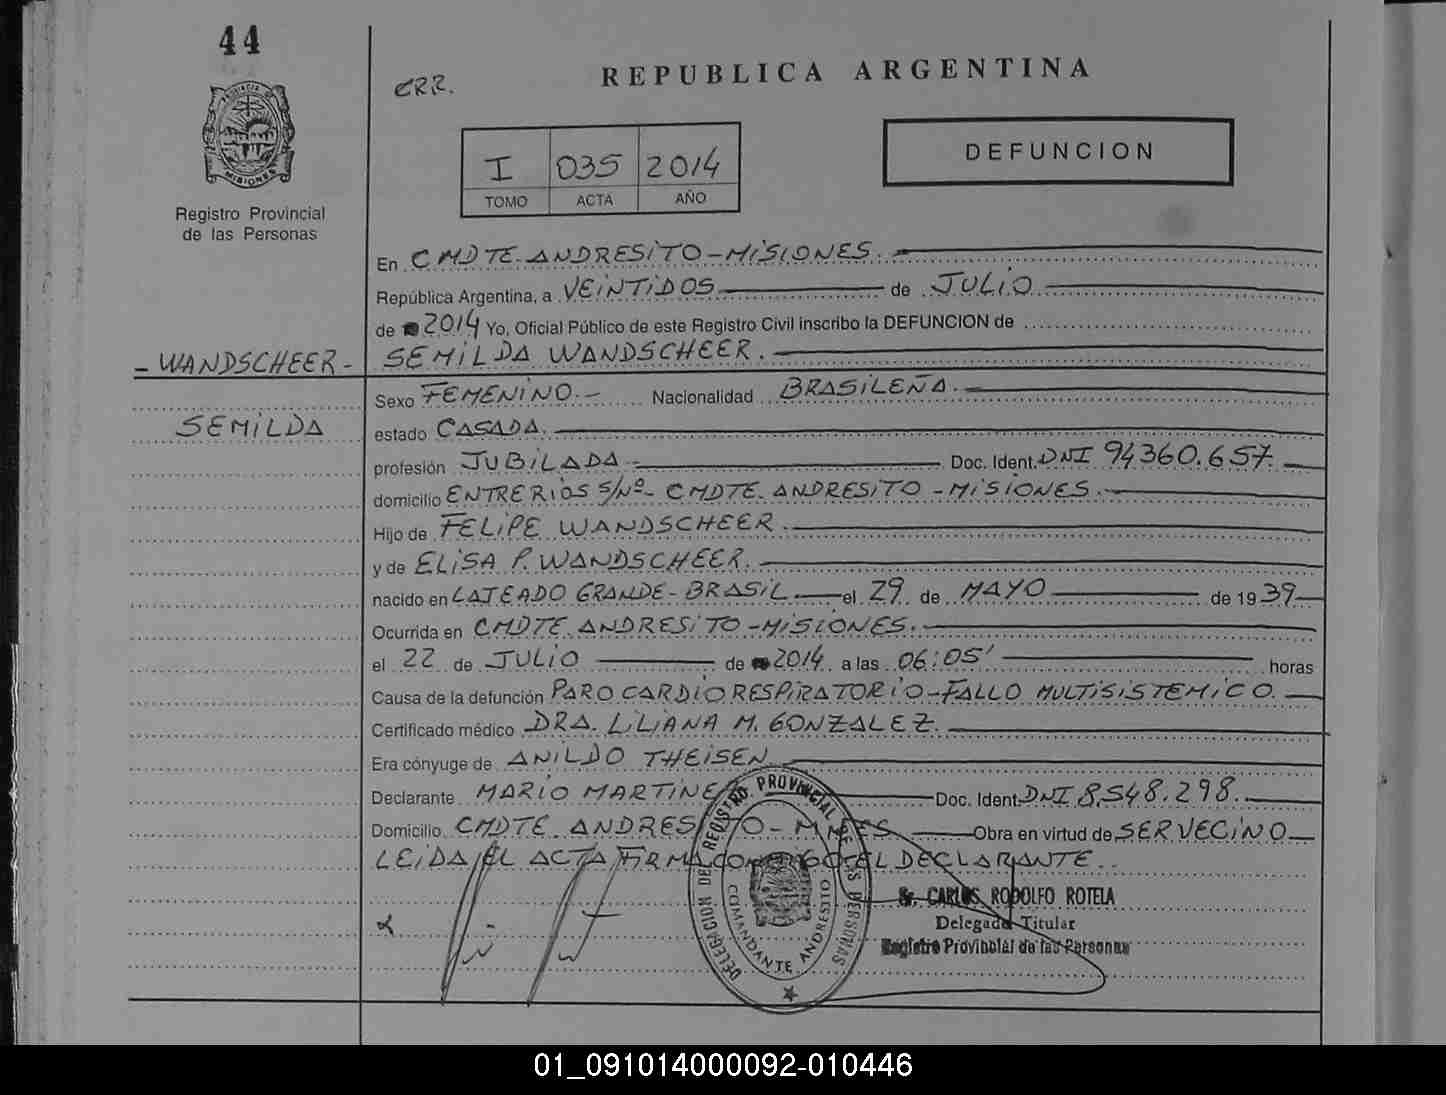 44
ERR.
REPUBLICA ARGENTINA
PROVINCIA
MISIONES
Registro Provincial
de las Personas
I 035 2014
TOMO ACTA AÑO
DEFUNCION
En CMDTE. ANDRESITO - MISIONES.
República Argentina, a VEINTIDOS de JULIO
de 2014 Yo, Oficial Público de este Registro Civil inscribo la DEFUNCION de
- WANDSCHEER - SEMILDA WANDSCHEER.
Sexo FEMENINO.- Nacionalidad BRASILEÑA.
SEMILDA estado CASADA.
profesión JUBILADA - Doc. Ident. DNI 94360.657.
domicilio ENTRE RIOS S/Nº - CMDTE. ANDRESITO - MISIONES.
Hijo de FELIPE WANDSCHEER.
y de ELISA P. WANDSCHEER.
nacido en LAJEADO GRANDE - BRASIL el 29 de MAYO de 1939
Ocurrida en CMDTE. ANDRESITO - MISIONES.
el 22 de JULIO de 2014 a las 06:05' horas
Causa de la defunción PARO CARDIO RESPIRATORIO - FALLO MULTISISTEMICO.
Certificado médico DRA. LILIANA M. GONZALEZ.
Era cónyuge de ANILDO THEISEN
Declarante MARIO MARTINEZ Doc. Ident. DNI 8.548.298.
Domicilio CMDTE ANDRESITO - MNES Obra en virtud de SER VECINO
LEIDA EL ACTA FIRMA CONMIGO EL DECLARANTE.
DELEGACION DEL REGISTRO PROVINCIAL DE LAS PERSONAS
COMANDANTE ANDRESITO
Sr. CARLOS RODOLFO ROTELA
Delegado Titular
Registro Provincial de las Personas
01_091014000092-010446